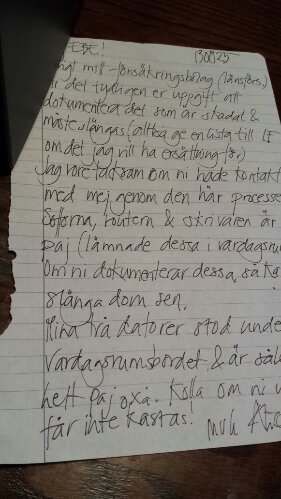 130825
mitt försäkringsbolag (länsförs.)
är det tydligen er uppgift att
dokumentera det som är skadat &
måste slängas (alltså ge en lista till LF
om det jag vill ha ersättning för)
Jag vore tacksam om ni hade kontakt
med mej genom den här processen
Sofforna, routern & skrivaren är
paj (lämnade dessa i vardagsru
Om ni dokumenterar dessa, så
slänga dom sen.
Mina två datorer stod unde
vardagsrumsbordet & är säk
helt paj oxå. Kolla om ni v
får inte kastas! mvh